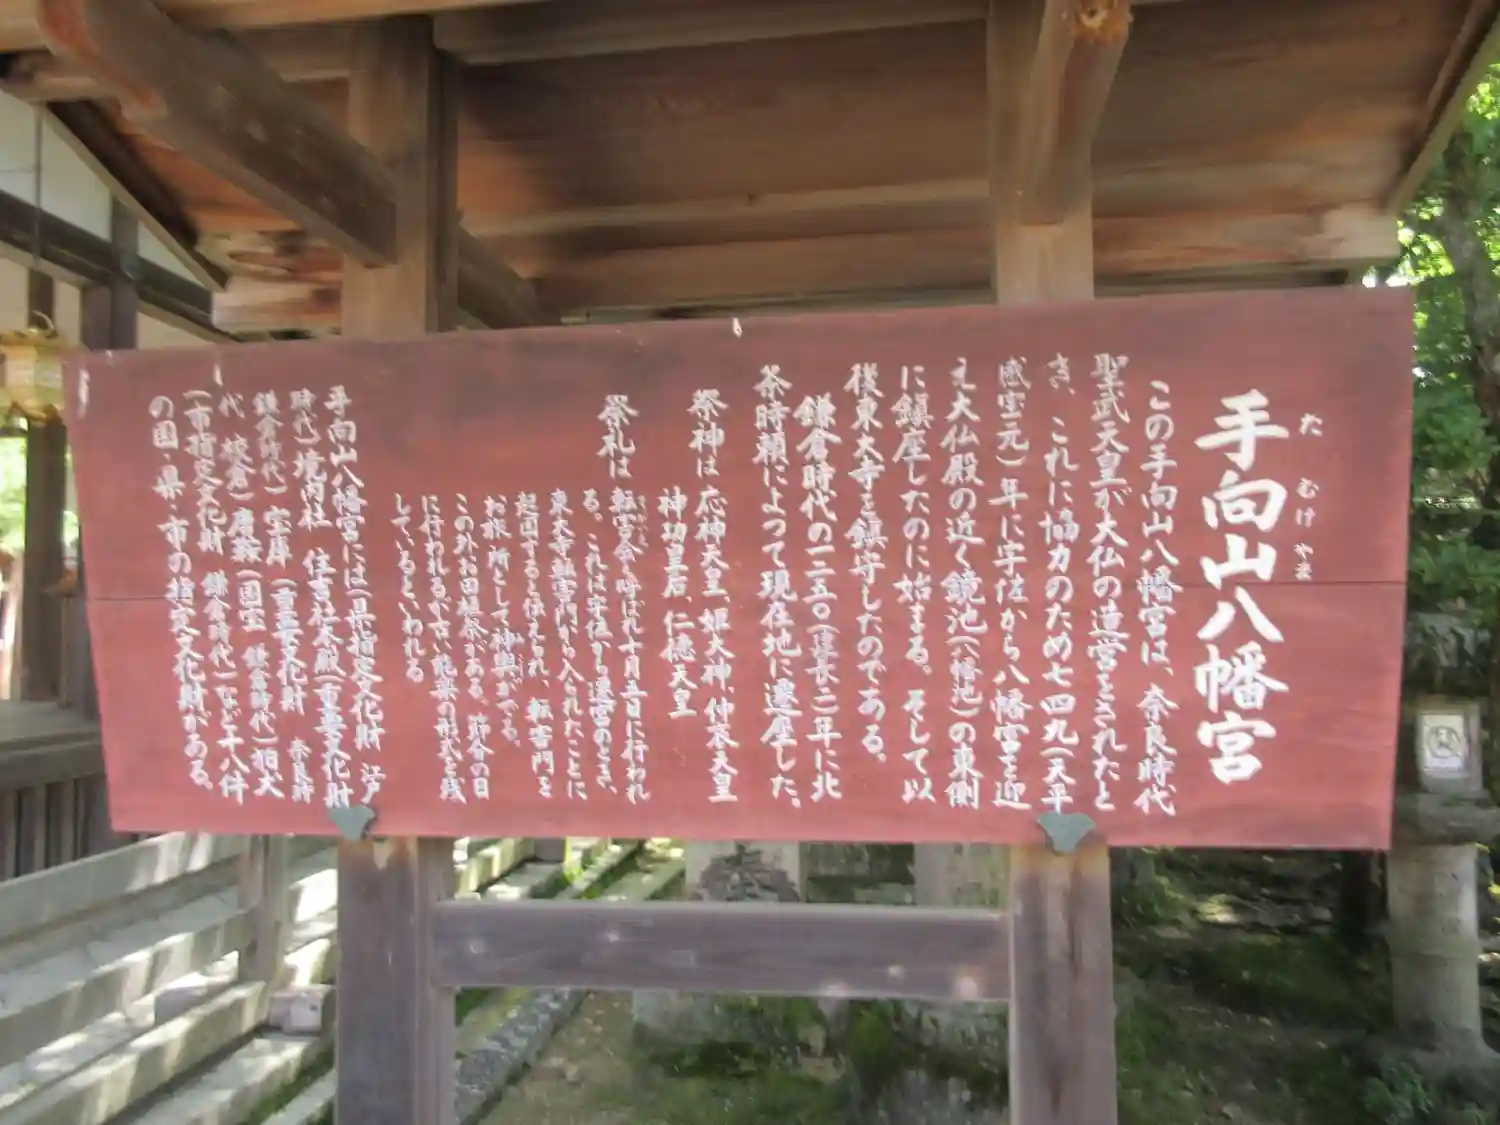 手向山八幡宮
た むけ やま
この手向山八幡宮は、奈良時代
聖武天皇が大仏の造営をされたと
き、これに協力のため七四九(天平
感宝元)年に宇佐から八幡宮を迎
え大仏殿の近く鏡池(八幡池)の東側
に鎮座したのに始まる。そして以
後東大寺を鎮守したのである。
鎌倉時代の一二五〇(建長二)年に北
条時頼によって現在地に遷座した。
祭神は 応神天皇、姫大神、仲哀天皇
神功皇后、仁徳天皇
祭礼は 転害会と呼ばれ十月五日に行われ
る。これは宇佐から遷宮のとき、
東大寺転害門から入られたことに
起因すると伝えられ、転害門を
お旅所として神輿がでる。
この外お田植祭がある。節分の日
に行われるが古い能楽の形式を残
しているといわれる
手向山八幡宮には(県指定文化財 江戸
時代)境内社 住吉社本殿(重要文化財
鎌倉時代)宝庫(重要文化財 奈良時
代 校倉)唐鞍(国宝 鎌倉時代)狛犬
(市指定文化財 鎌倉時代)など十八件
の国・県・市の指定文化財がある。